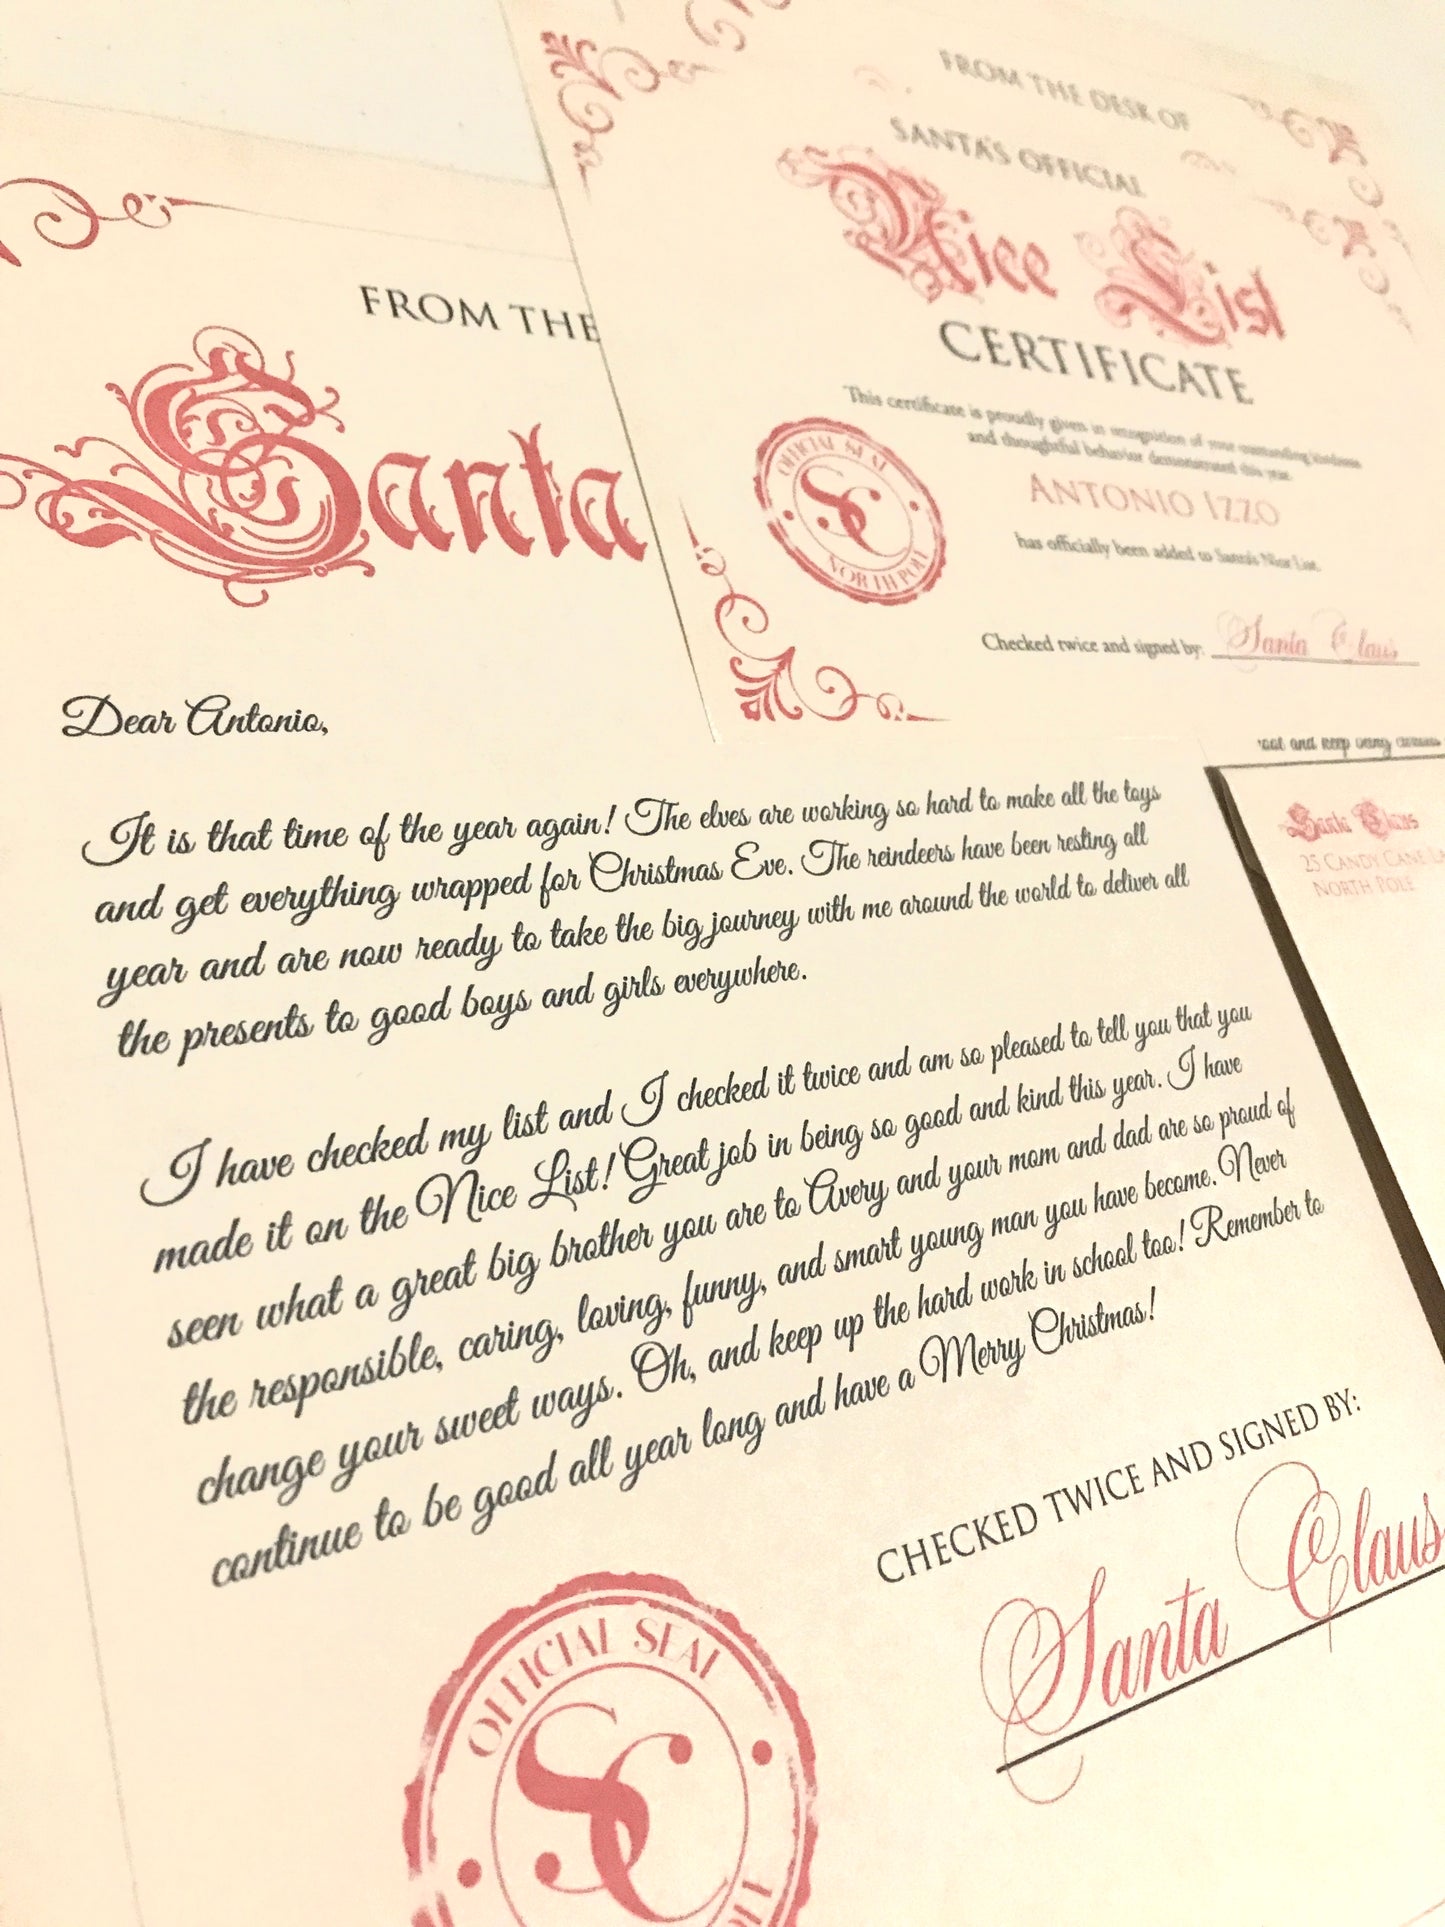 FROM THE
Santa
Dear Antonio,
It is that time of the year again! The elves are working so hard to make all the toys
and get everything wrapped for Christmas Eve. The reindeers have been resting all
year and are now ready to take the big journey with me around the world to deliver all
the presents to good boys and girls everywhere.
I have checked my list and I checked it twice and am so pleased to tell you that you
made it on the Nice List! Great job in being so good and kind this year. I have
seen what a great big brother you are to Avery and your mom and dad are so proud of
the responsible, caring, loving, funny, and smart young man you have become. Never
change your sweet ways. Oh, and keep up the hard work in school too! Remember to
continue to be good all year long and have a Merry Christmas!
CHECKED TWICE AND SIGNED BY:
Santa Claus
OFFICIAL SEAL
SC
FROM THE DESK OF
SANTA'S OFFICIAL
Nice List
CERTIFICATE
This certificate is proudly given in recognition of your outstanding kindness
and thoughtful behavior demonstrated this year.
ANTONIO IZZO
has officially been added to Santa's Nice List.
Checked twice and signed by: Santa Claus
OFFICIAL SEAL
SC
NORTH POLE
and keep
Santa Claus
25 CANDY CANE
NORTH POLE